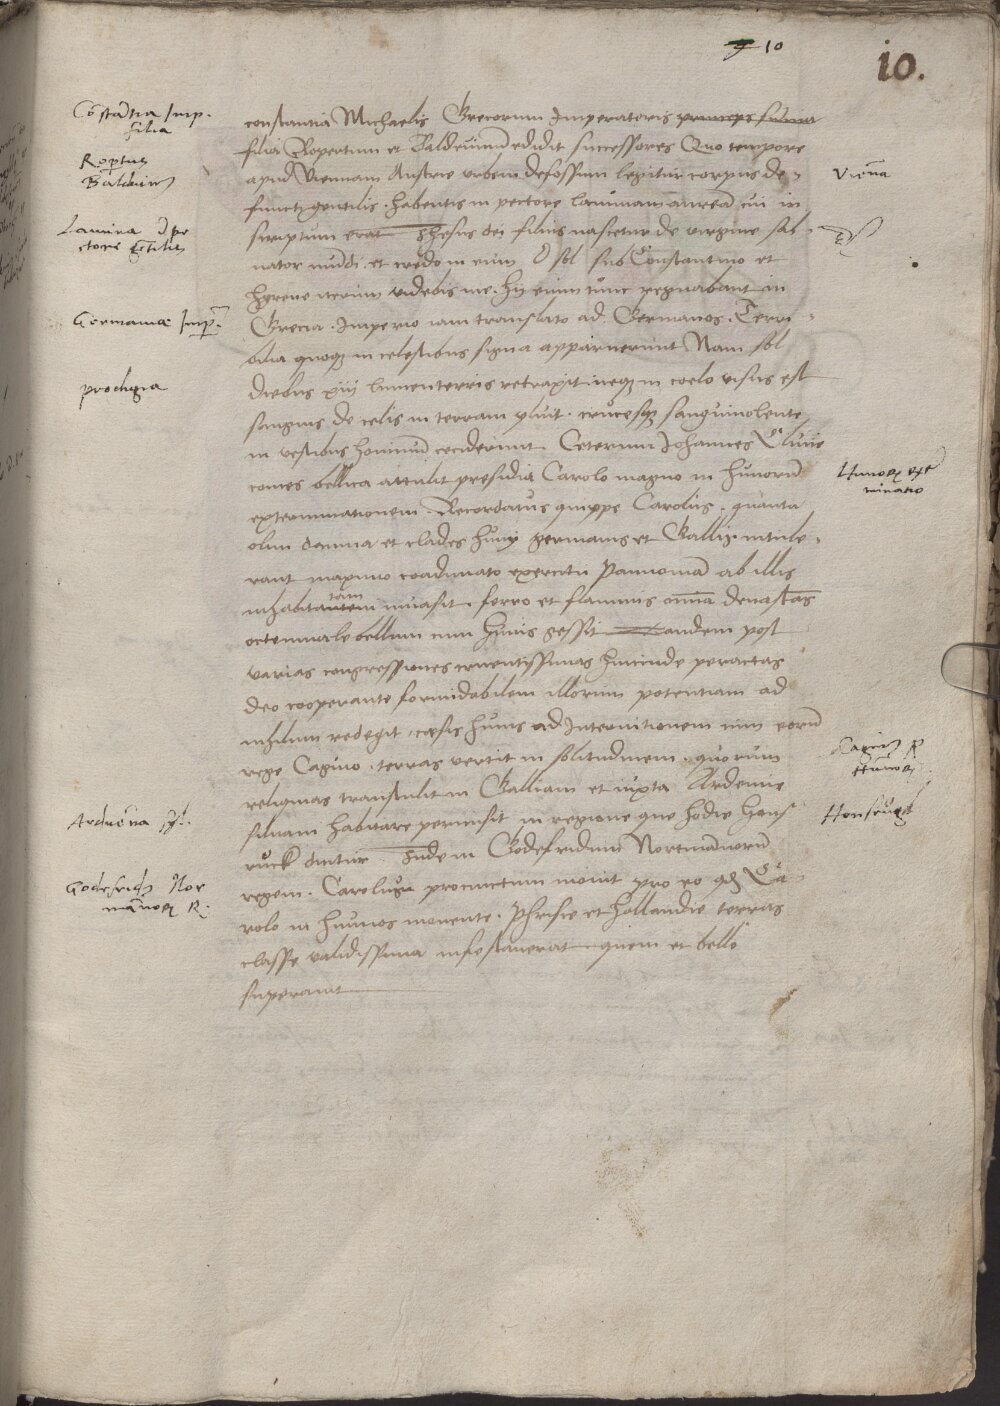 9 10
10.
Cõstãtia Imp.
filia
Roptus
Balduin9
Lamina ĩ pe
ctore gẽtilis
Germanie Imp.
prodigia
Arduẽna syl.
Godefrid9 Nor
mãnoꝝ R.
constantia Michaelis Grecorum Imperatoris
filia Ropertum et Balduinũ edidit successores Quo tempore
apud Viennam Austrie urbem defossum legitur corpus de-
functi gentilis. habentis in pectore laminam aureã cui in
scriptum erat Jhesus dei filius nascetur de virgine sal-
uator mũdi. et credo in eum O sol sub Constantino et
hyrene iterum videbis me. hij enim tunc regnabant in
Grecia. Imperio iam translato ad Germanos. Terri-
bilia quoqz in celestibus signa apparuerunt Nam sol
diebus xiiij lumen terris retraxit neqz in coelo visus est
sanguis de celis in terram pluit. crucesqz sanguinolente
in vestibus hominũ ceciderunt. Ceterum Johannes Cliuie
comes bellica attulit presidia Carolo magno in hunorũ
exterminationem. Recordatus quippe Carolus. quanta
olim damna et clades huni germanis et Gallis intule-
rant maximo coadunato exercitu Pannoniã ab illis
inhabitatam inuasit. ferro et flammis omnia deuastãs
octennuale bellum cum hunis gessit tandem post
varias congressiones cruentissimas hincinde peractas
deo cooperante formidabilem illorum potentiam ad
nihilum redegit. cæsis hunis ad Internitionem cum eorũ
rege Cagino. terras vertit in solitudinem. quorum
reliquias transtulit in Galliam et iuxta Ardenne
siluam habitare permisit in regione que hodie Hans
ruck dicitur. Inde in Godefridum Nortmãnorũ
regem. Carolus procinctum mouit pro eo qd Ca-
rolo in hunos mouente. Phrisie et hollandie terras
classe validissima infestauerat quem et bello
superauit
Viẽna
Hunoꝝ exter
minatio
Cagin9 R
Hunoꝝ
Honsruck